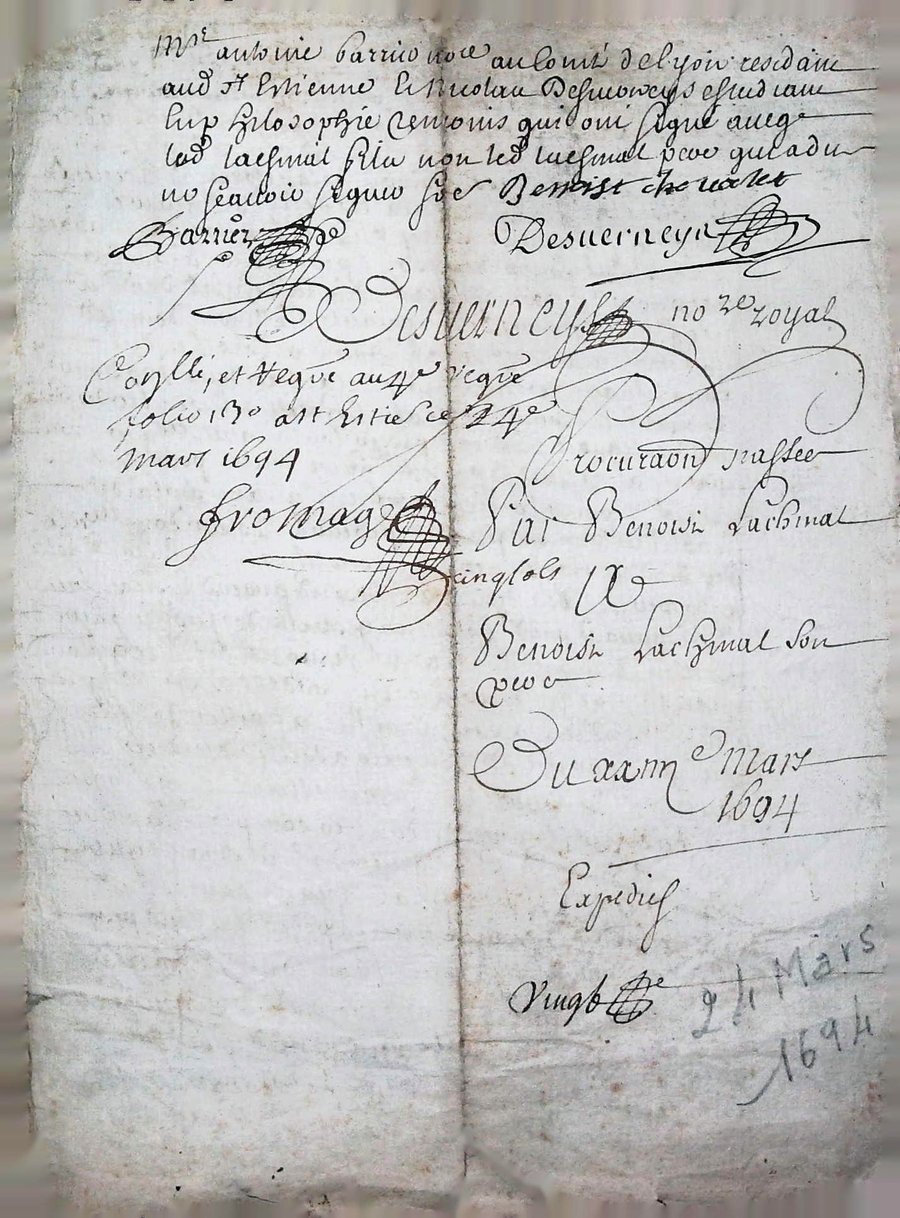 Mre antoine barrier nore au Comté de lyon residant
aud St Estienne & Nicolau Desuerneys estudiant
En philosophie temoins qui ont signé avec
led Lachmal fils non led Lachmal pere qui a dit
ne scauoir signer soe Benoist
Barrier Desuerneys
Desuerneys nore royal
Conlle, et Regré au 4e regre
folio 130 a St Estiene ce 24e
mars 1694
fromage
cinq sols
Procuraon passée
Par Benoist Lachmal
A
Benoist Lachmal son
pere
Du mars
1694
Expedié
Vingt
24 Mars
1694